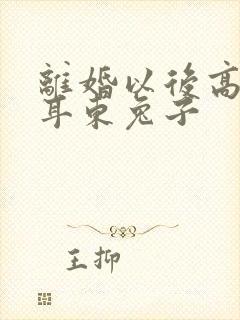 離婚以後高
耳東兔子
王抑